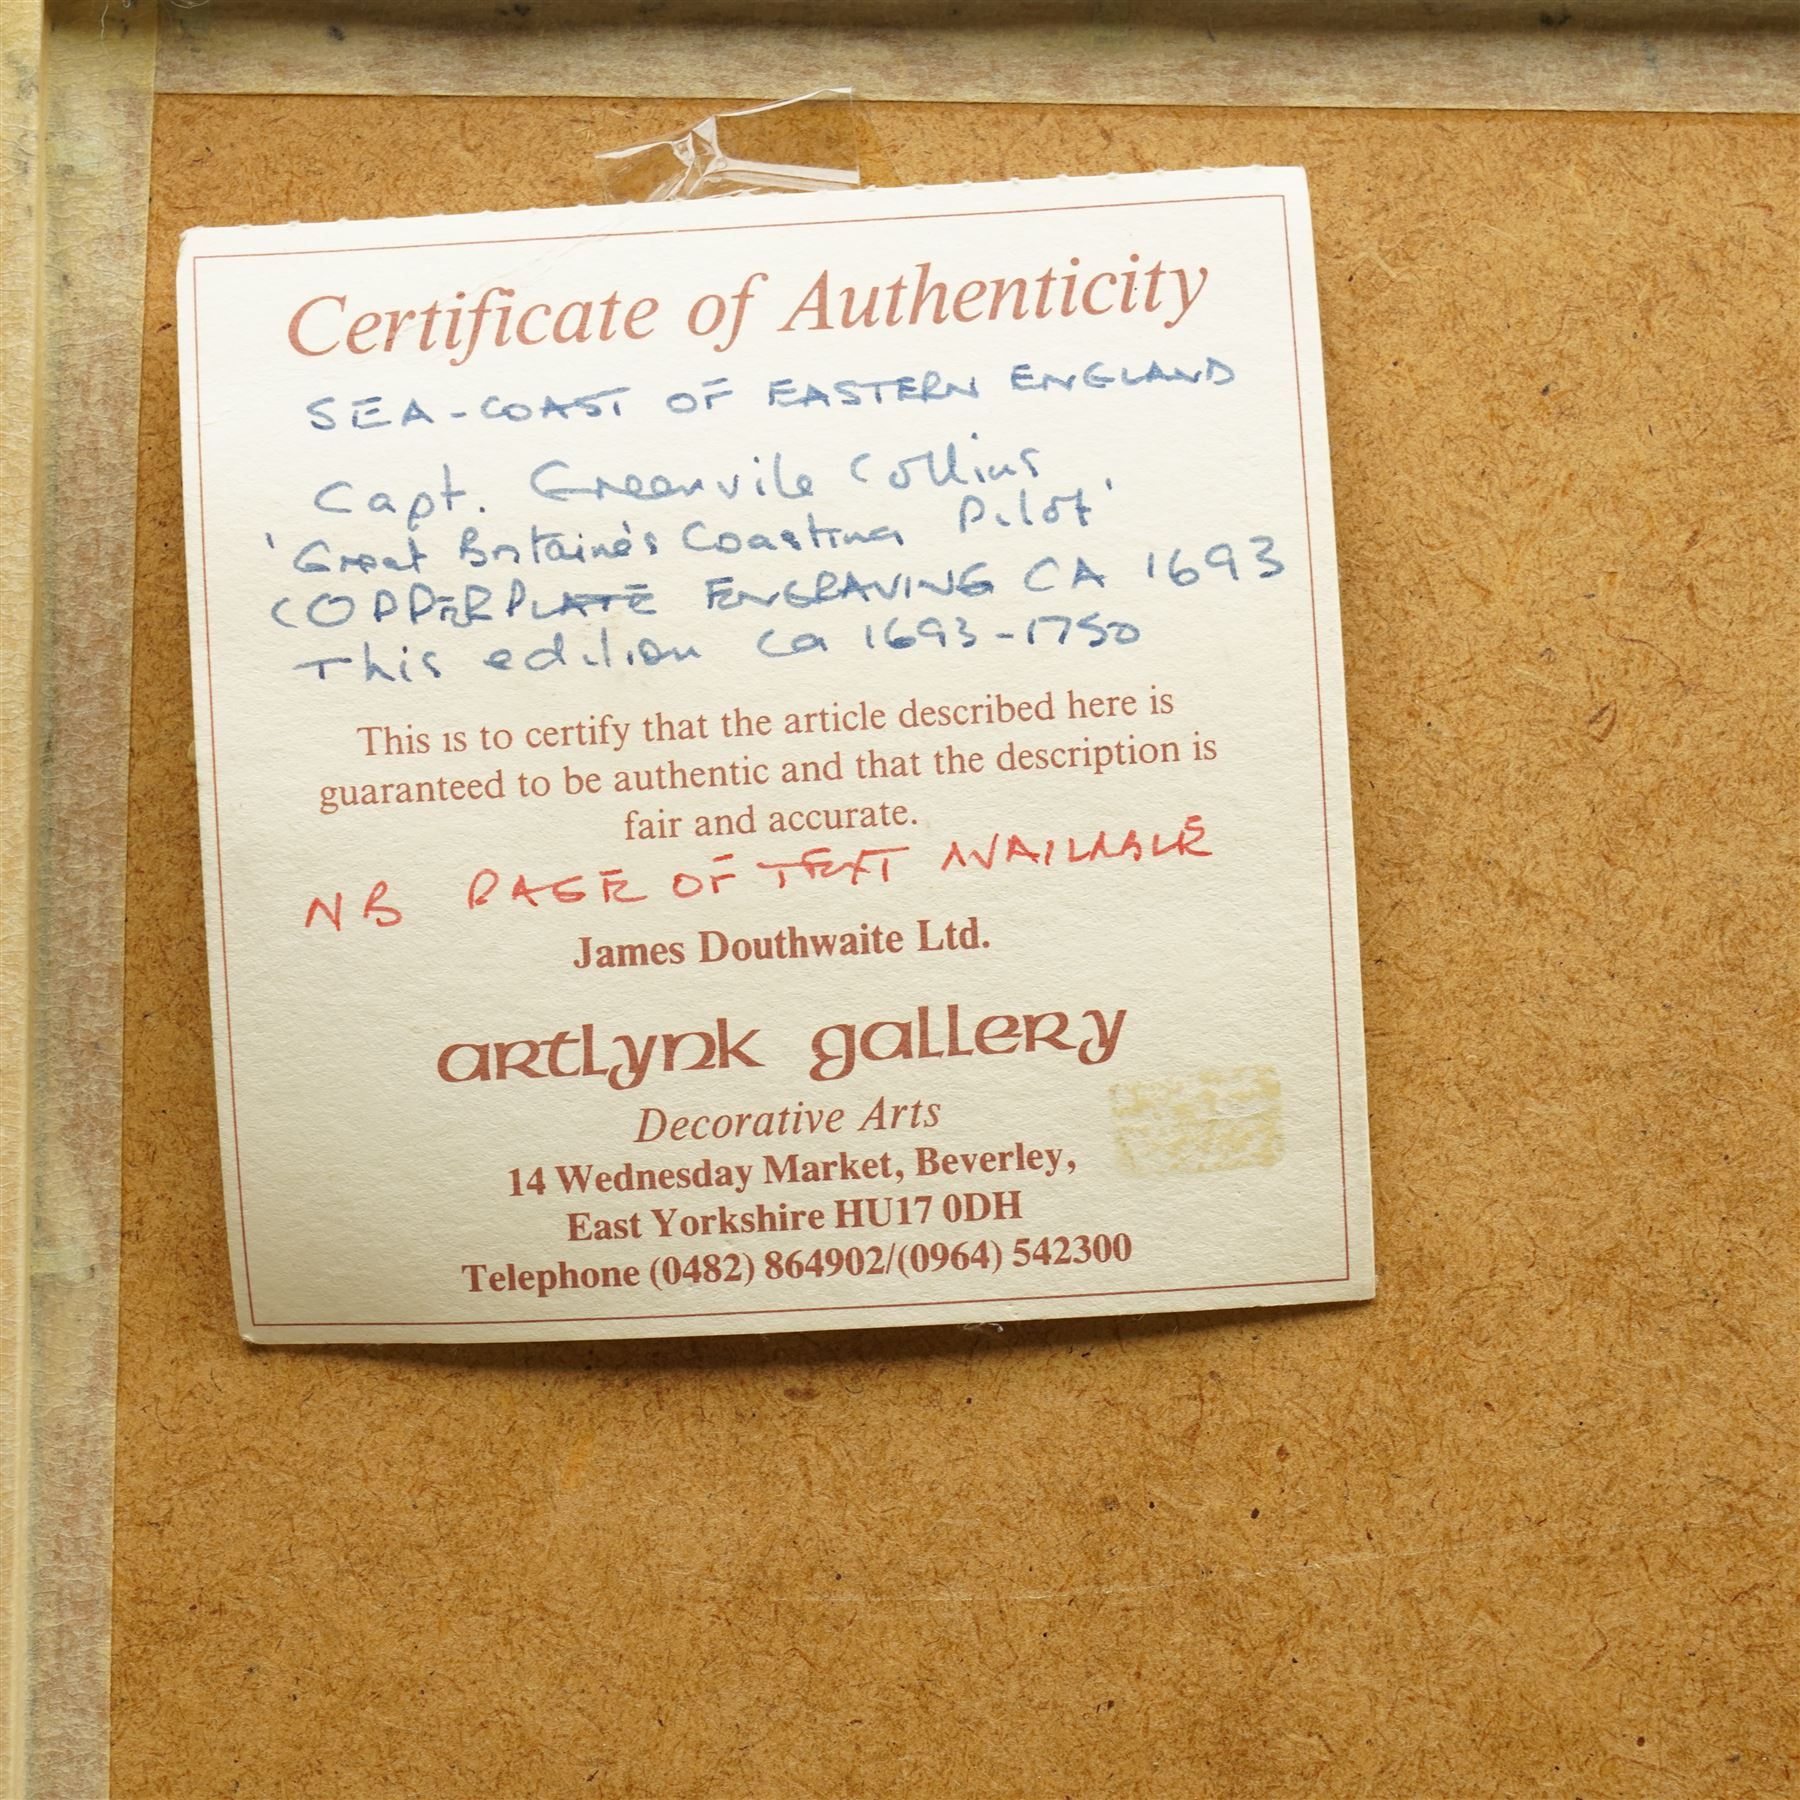 Certificate of Authenticity
SEA-COAST OF EASTERN ENGLAND
Capt. Greenvile Collins
'Great Britaine's Coasting Pilot'
COPPERPLATE ENGRAVING CA 1693
This edition ca 1693-1750
This is to certify that the article described here is
guaranteed to be authentic and that the description is
fair and accurate.
NB PAGE OF TEXT AVAILABLE
James Douthwaite Ltd.
artlynk gallery
Decorative Arts
14 Wednesday Market, Beverley,
East Yorkshire HU17 0DH
Telephone (0482) 864902/(0964) 542300